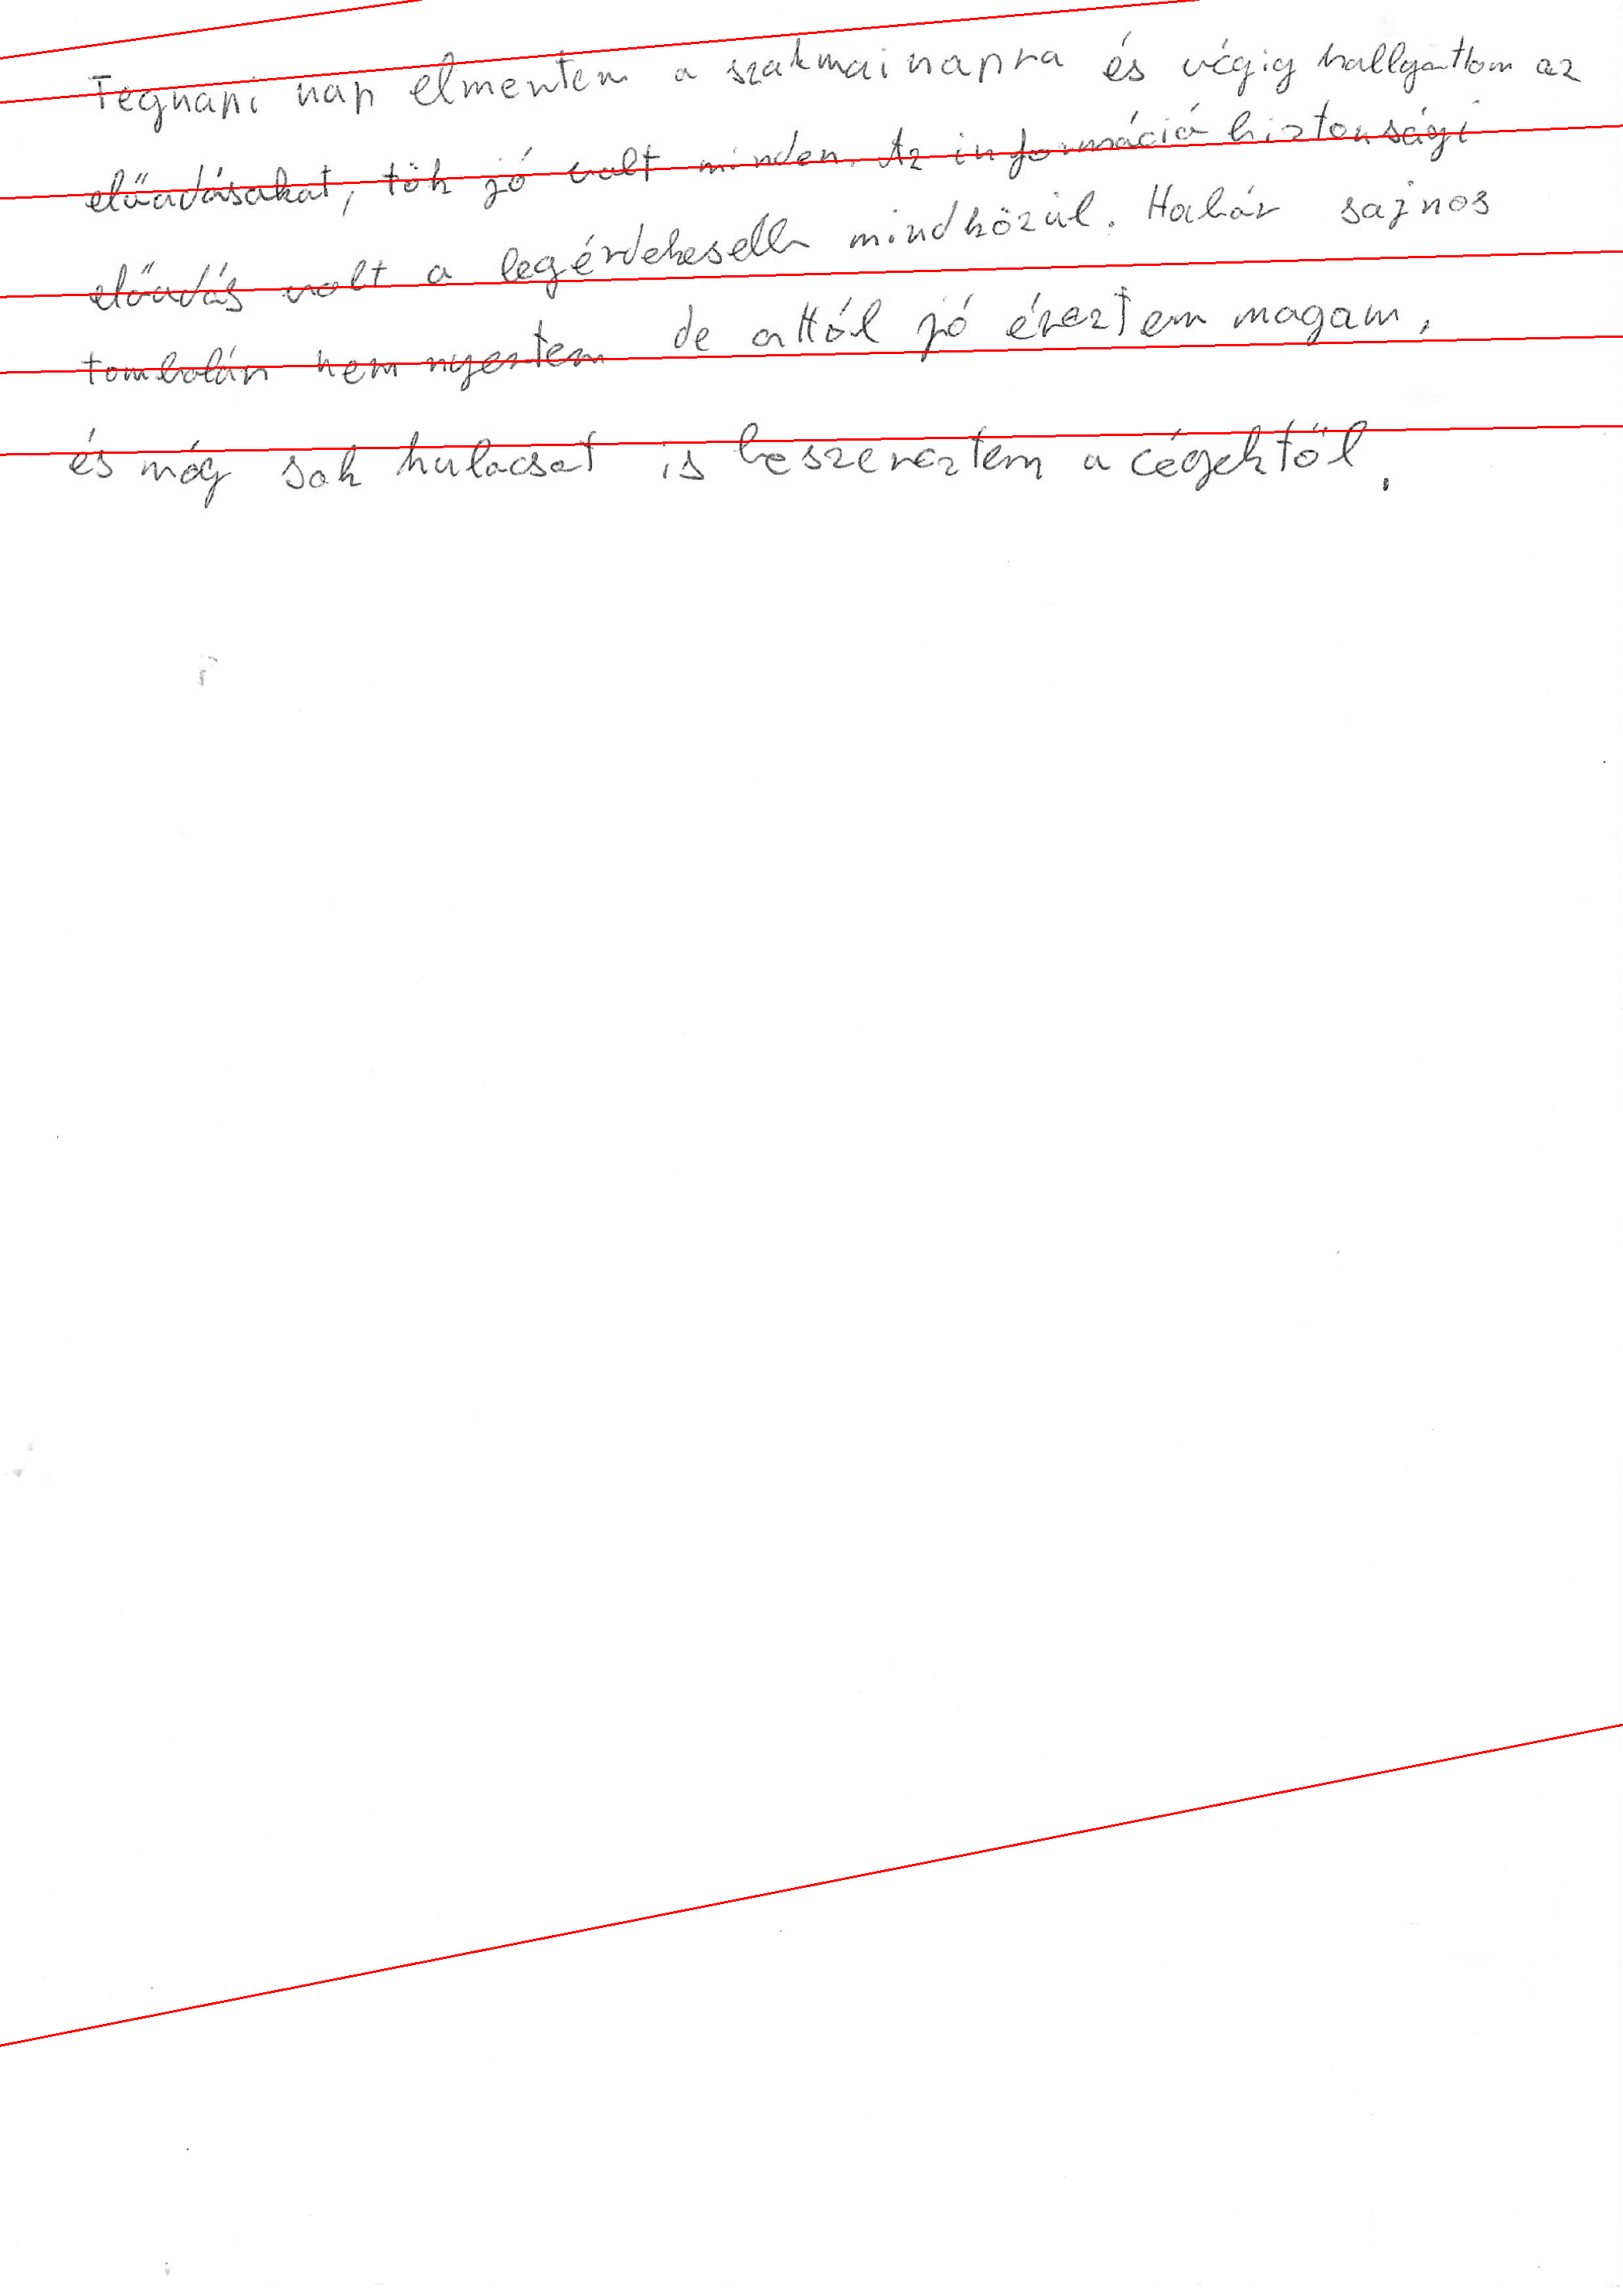 Tegnapi nap elmentem a szakmai napra és végig hallgattam az
előadásakat, tök jó volt minden. Az információ biztonsági
előadás volt a legérdekesebb mindközül. Habár sajnos
tombolán nem nyertem de attól jó éreztem magam,
és még sok kulacsot is beszereztem a cégektől.